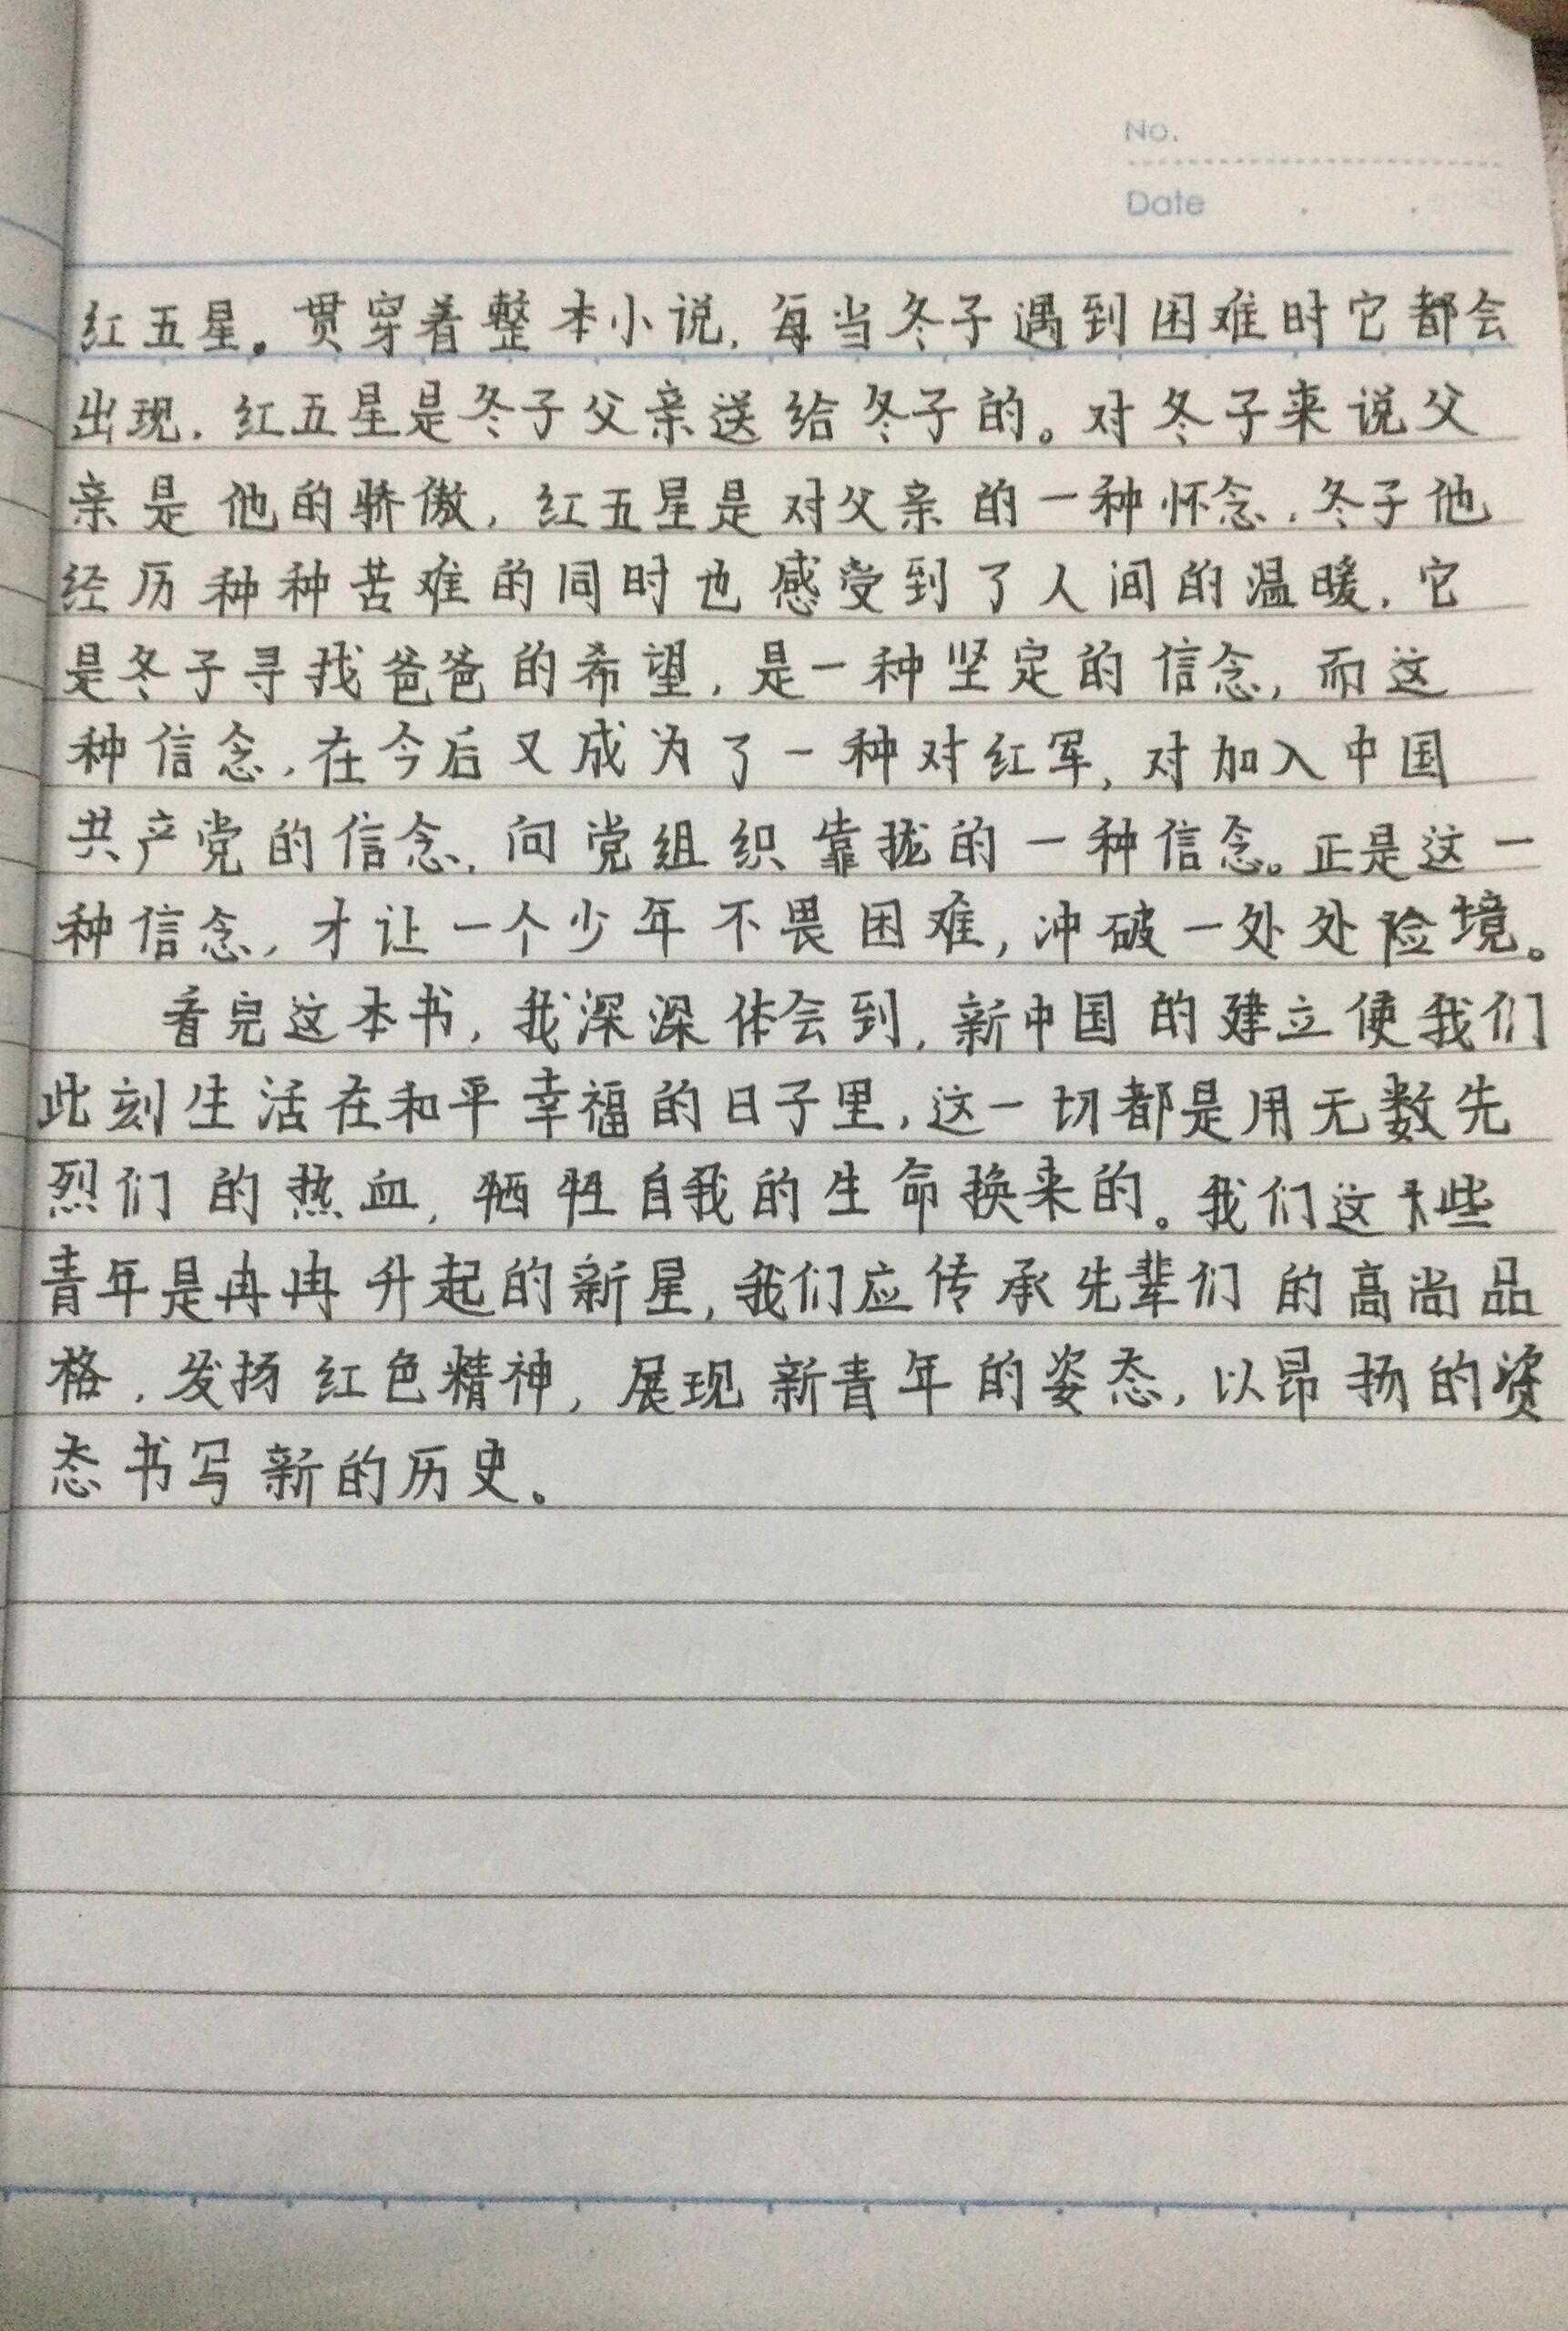 No.
Date
红五星。贯穿着整本小说,每当冬子遇到困难时它都会
出现.红五星是冬子父亲送给冬子的。对冬子来说父
亲是他的骄傲,红五星是对父亲的一种怀念.冬子他
经历种种苦难的同时也感受到了人间的温暖.它
是冬子寻找爸爸的希望,是一种坚定的信念,而这
种信念,在今后又成为了一种对红军,对加入中国
共产党的信念,向党组织靠拢的一种信念。正是这一
种信念,才让一个少年不畏困难,冲破一处处险境。
看完这本书,我深深体会到,新中国的建立使我们
此刻生活在和平幸福的日子里,这一切都是用无数先
烈们的热血,牺牲自我的生命换来的。我们这些
青年是冉冉升起的新星,我们应传承先辈们的高尚品
格.发扬红色精神,展现新青年的姿态,以昂扬的姿
态书写新的历史。